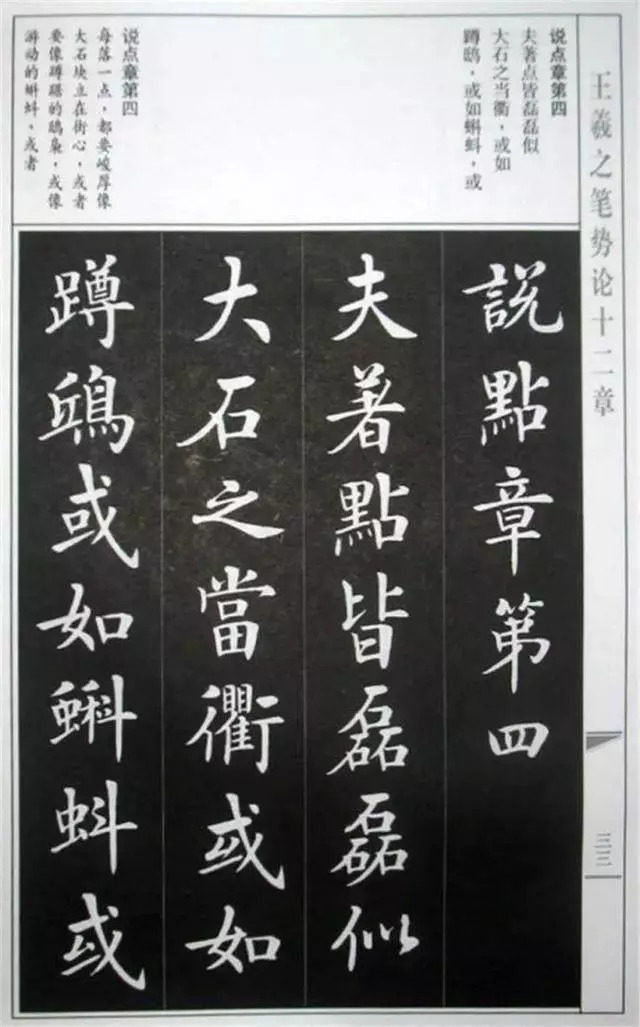 王羲之笔势论十二章
三三
说点章第四
夫著点皆磊磊似
大石之当衢，或如
蹲鸱，或如蝌蚪，或
说点章第四
每落一点，都要峻厚像
大石块立在街心，或者
要像蹲踞的鸱枭，或像
游动的蝌蚪，或者
説點章第四
夫著點皆磊磊似
大石之當衢或如
蹲鴟或如蝌蚪或